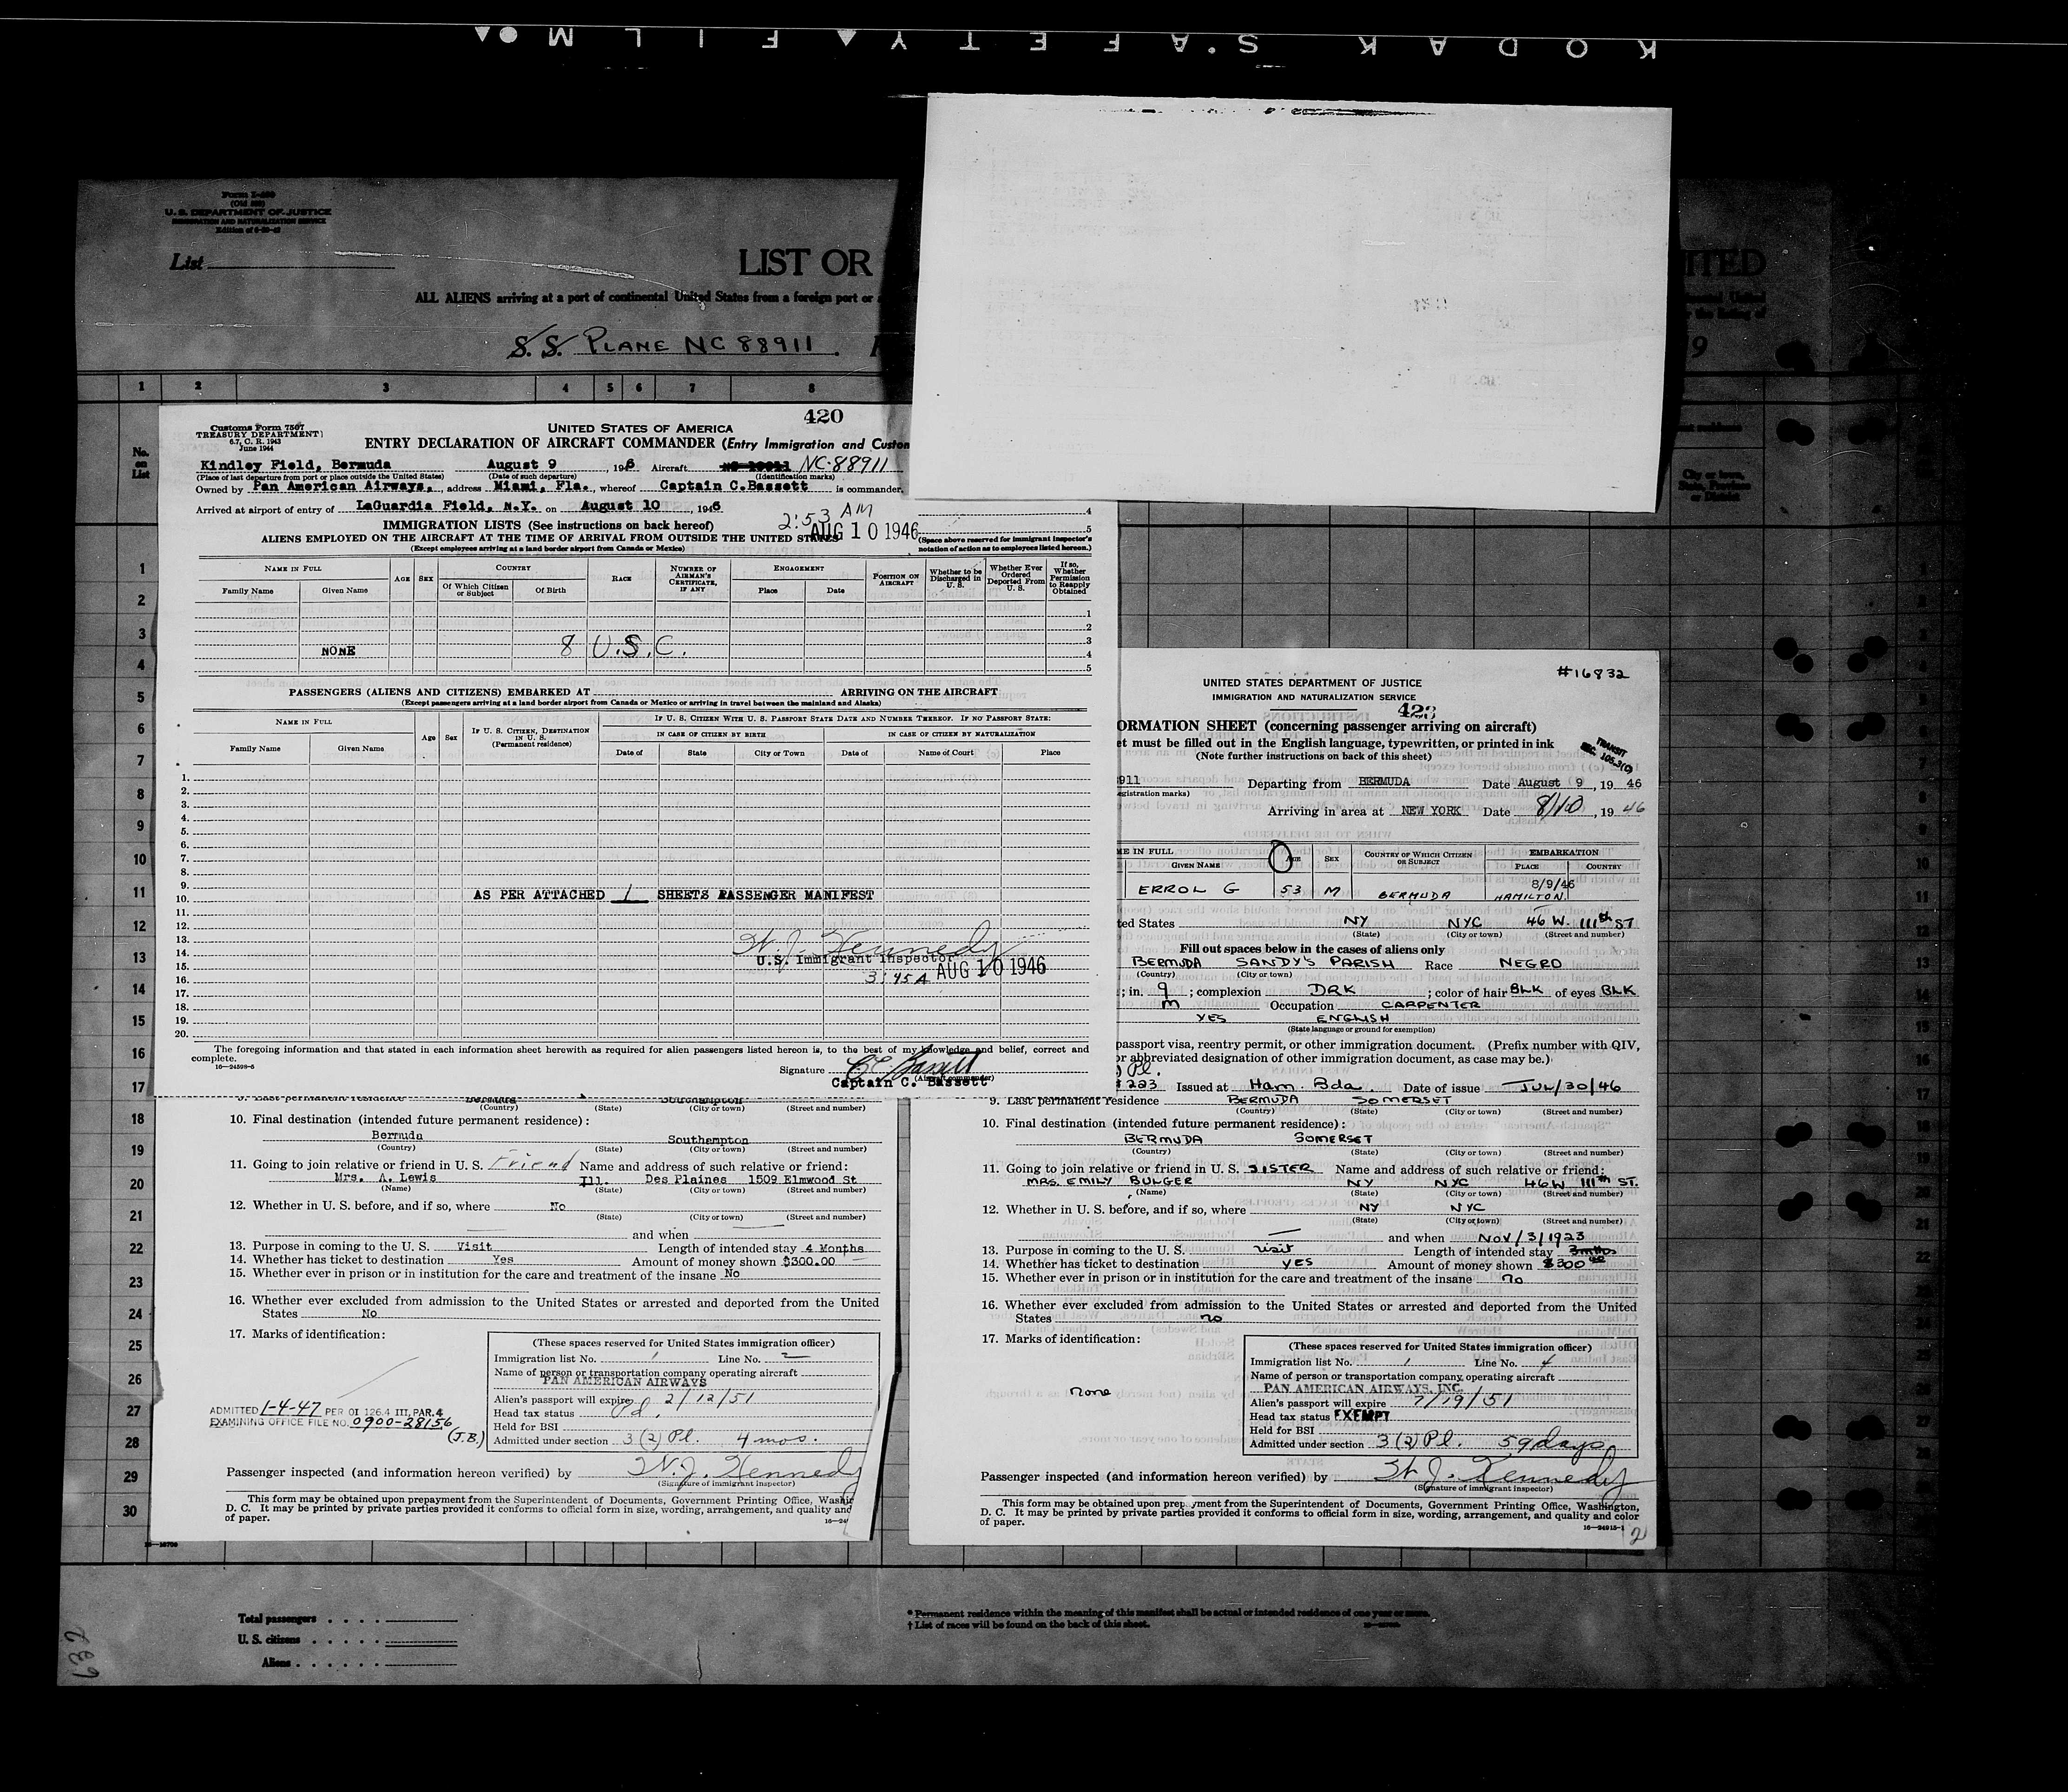 KODAK SAFETY FILM
Form I-400
(Old 500)
U. S. DEPARTMENT OF JUSTICE
IMMIGRATION AND NATURALIZATION SERVICE
List
LIST OR
ITED
ALL ALIENS arriving at a port of continental United States from a foreign port or
S. S. PLANE NC 88911
9
1 2 3 4 5 6 7 8
No. on List
City or town,
Customs Form 7507
TREASURY DEPARTMENT
6.7, C. R. 1943
June 1944
420
UNITED STATES OF AMERICA
ENTRY DECLARATION OF AIRCRAFT COMMANDER (Entry Immigration and Custom
Kindley Field, Bermuda August 9 , 1946 Aircraft NC-88911
(Place of last departure from port or place outside the United States) (Date of such departure) (Identification marks)
Owned by Pan American Airways, , address Miami, Fla. , whereof Captain C.Bassett is commander.
Arrived at airport of entry of LaGuardia Field, N.Y. on August 10 , 1946
2:53 AM
AUG 10 1946
IMMIGRATION LISTS (See instructions on back hereof)
ALIENS EMPLOYED ON THE AIRCRAFT AT THE TIME OF ARRIVAL FROM OUTSIDE THE UNITED STATES
(Except employees arriving at a land border airport from Canada or Mexico)
4
5
(Space above reserved for immigrant inspector's notation of action as to employees listed hereon.)
NAME IN FULL AGE SEX COUNTRY RACE NUMBER OF AIRMAN'S CERTIFICATE, IF ANY ENGAGEMENT POSITION ON AIRCRAFT Whether to be Discharged in U. S. Whether Ever Ordered Deported From U. S. If so, Whether Permission to Reapply Obtained
Family Name Given Name Of Which Citizen or Subject Of Birth Place Date
1
2
3
NONE 8 U.S.C. 4
5
PASSENGERS (ALIENS AND CITIZENS) EMBARKED AT ARRIVING ON THE AIRCRAFT
(Except passengers arriving at a land border airport from Canada or Mexico or arriving in travel between the mainland and Alaska)
NAME IN FULL Age Sex IF U. S. CITIZEN, DESTINATION IN U. S. (Permanent residence) IF U. S. CITIZEN WITH U. S. PASSPORT STATE DATE AND NUMBER THEREOF. IF NO PASSPORT STATE:
IN CASE OF CITIZEN BY BIRTH IN CASE OF CITIZEN BY NATURALIZATION
Family Name Given Name Date of State City or Town Date of Name of Court Place
1.
2.
3.
4.
5.
6.
7.
8.
9.
10. AS PER ATTACHED 1 SHEETS PASSENGER MANIFEST
11.
12.
13.
14.
15.
16.
17.
18.
19.
20.
W. J. Kennedy
U.S. Immigrant Inspector
3:45 A AUG 10 1946
The foregoing information and that stated in each information sheet herewith as required for alien passengers listed hereon is, to the best of my knowledge and belief, correct and complete.
16—24598-5
Signature C E Bassett
(Aircraft commander)
Captain C. Bassett
9. Last permanent residence Bermuda Southampton
(Country) (State) (City or town) (Street and number)
10. Final destination (intended future permanent residence):
Bermuda Southampton
(Country) (State) (City or town) (Street and number)
11. Going to join relative or friend in U. S. Friend Name and address of such relative or friend:
Mrs. A. Lewis Ill. Des Plaines 1509 Elmwood St
(Name) (State) (City or town) (Street and number)
12. Whether in U. S. before, and if so, where No
(State) (City or town) (Street and number)
and when
13. Purpose in coming to the U. S. Visit Length of intended stay 4 Months
14. Whether has ticket to destination Yes Amount of money shown $300.00
15. Whether ever in prison or in institution for the care and treatment of the insane No
16. Whether ever excluded from admission to the United States or arrested and deported from the United
States No
17. Marks of identification:
(These spaces reserved for United States immigration officer)
Immigration list No. 1 Line No. 2
Name of person or transportation company operating aircraft
PAN AMERICAN AIRWAYS
Alien's passport will expire 2/12/51
Head tax status Pd.
Held for BSI
Admitted under section 3 (2) Pl. 4 mos.
ADMITTED 1-4-47 PER OI 126.4 III, PAR. 4
EXAMINING OFFICE FILE NO. 0900-28156
(J.B.)
Passenger inspected (and information hereon verified) by W. J. Kennedy
(Signature of immigrant inspector)
This form may be obtained upon prepayment from the Superintendent of Documents, Government Printing Office, Washin
D. C. It may be printed by private parties provided it conforms to official form in size, wording, arrangement, and quality and
of paper.
#16832
UNITED STATES DEPARTMENT OF JUSTICE
IMMIGRATION AND NATURALIZATION SERVICE
423
ORMATION SHEET (concerning passenger arriving on aircraft)
et must be filled out in the English language, typewritten, or printed in ink
(Note further instructions on back of this sheet)
TRANSIT
SEC. 105.3(C)
8911 Departing from BERMUDA Date August 9 , 19 46
egistration marks)
Arriving in area at NEW YORK Date 8/10 , 19 46
ME IN FULL AGE SEX COUNTRY OF WHICH CITIZEN OR SUBJECT EMBARKATION
GIVEN NAME PLACE COUNTRY
8/9/46
ERROL G 53 M BERMUDA HAMILTON
ted States NY NYC 46 W. 111th ST
(State) (City or town) (Street and number)
Fill out spaces below in the cases of aliens only
BERMUDA SANDY'S PARISH Race NEGRO
(Country) (City or town)
; in. 9 ; complexion DRK ; color of hair BLK of eyes BLK
M Occupation CARPENTER
YES ENGLISH
(State language or ground for exemption)
passport visa, reentry permit, or other immigration document. (Prefix number with QIV,
or abbreviated designation of other immigration document, as case may be.)
Pl.
223 Issued at Ham. Bda. Date of issue JUL/30/46
9. Last permanent residence BERMUDA SOMERSET
(Country) (State) (City or town) (Street and number)
10. Final destination (intended future permanent residence):
BERMUDA SOMERSET
(Country) (State) (City or town) (Street and number)
11. Going to join relative or friend in U. S. SISTER Name and address of such relative or friend:
MRS. EMILY BULGER NY NYC 46 W 111th ST.
(Name) (State) (City or town) (Street and number)
12. Whether in U. S. before, and if so, where NY NYC
(State) (City or town) (Street and number)
and when NOV/3/1923
13. Purpose in coming to the U. S. visit Length of intended stay 3 mths
14. Whether has ticket to destination YES Amount of money shown $300
15. Whether ever in prison or in institution for the care and treatment of the insane no
16. Whether ever excluded from admission to the United States or arrested and deported from the United
States no
17. Marks of identification:
none
(These spaces reserved for United States immigration officer)
Immigration list No. 1 Line No. 4
Name of person or transportation company operating aircraft
PAN AMERICAN AIRWAYS, INC.
Alien's passport will expire 7/19/51
Head tax status EXEMPT
Held for BSI
Admitted under section 3 (2) Pl. 59 days
Passenger inspected (and information hereon verified) by W. J. Kennedy
(Signature of immigrant inspector)
This form may be obtained upon prepayment from the Superintendent of Documents, Government Printing Office, Washington,
D. C. It may be printed by private parties provided it conforms to official form in size, wording, arrangement, and quality and color
of paper.
16—24915-1
2
1
2
3
4
5
6
7
8
9
10
11
12
13
14
15
16
17
18
19
20
21
22
23
24
25
26
27
28
29
30
Total passengers
U. S. citizens
Aliens
* Permanent residence within the meaning of this manifest shall be actual or intended residence of one year or more.
† List of races will be found on the back of this sheet.